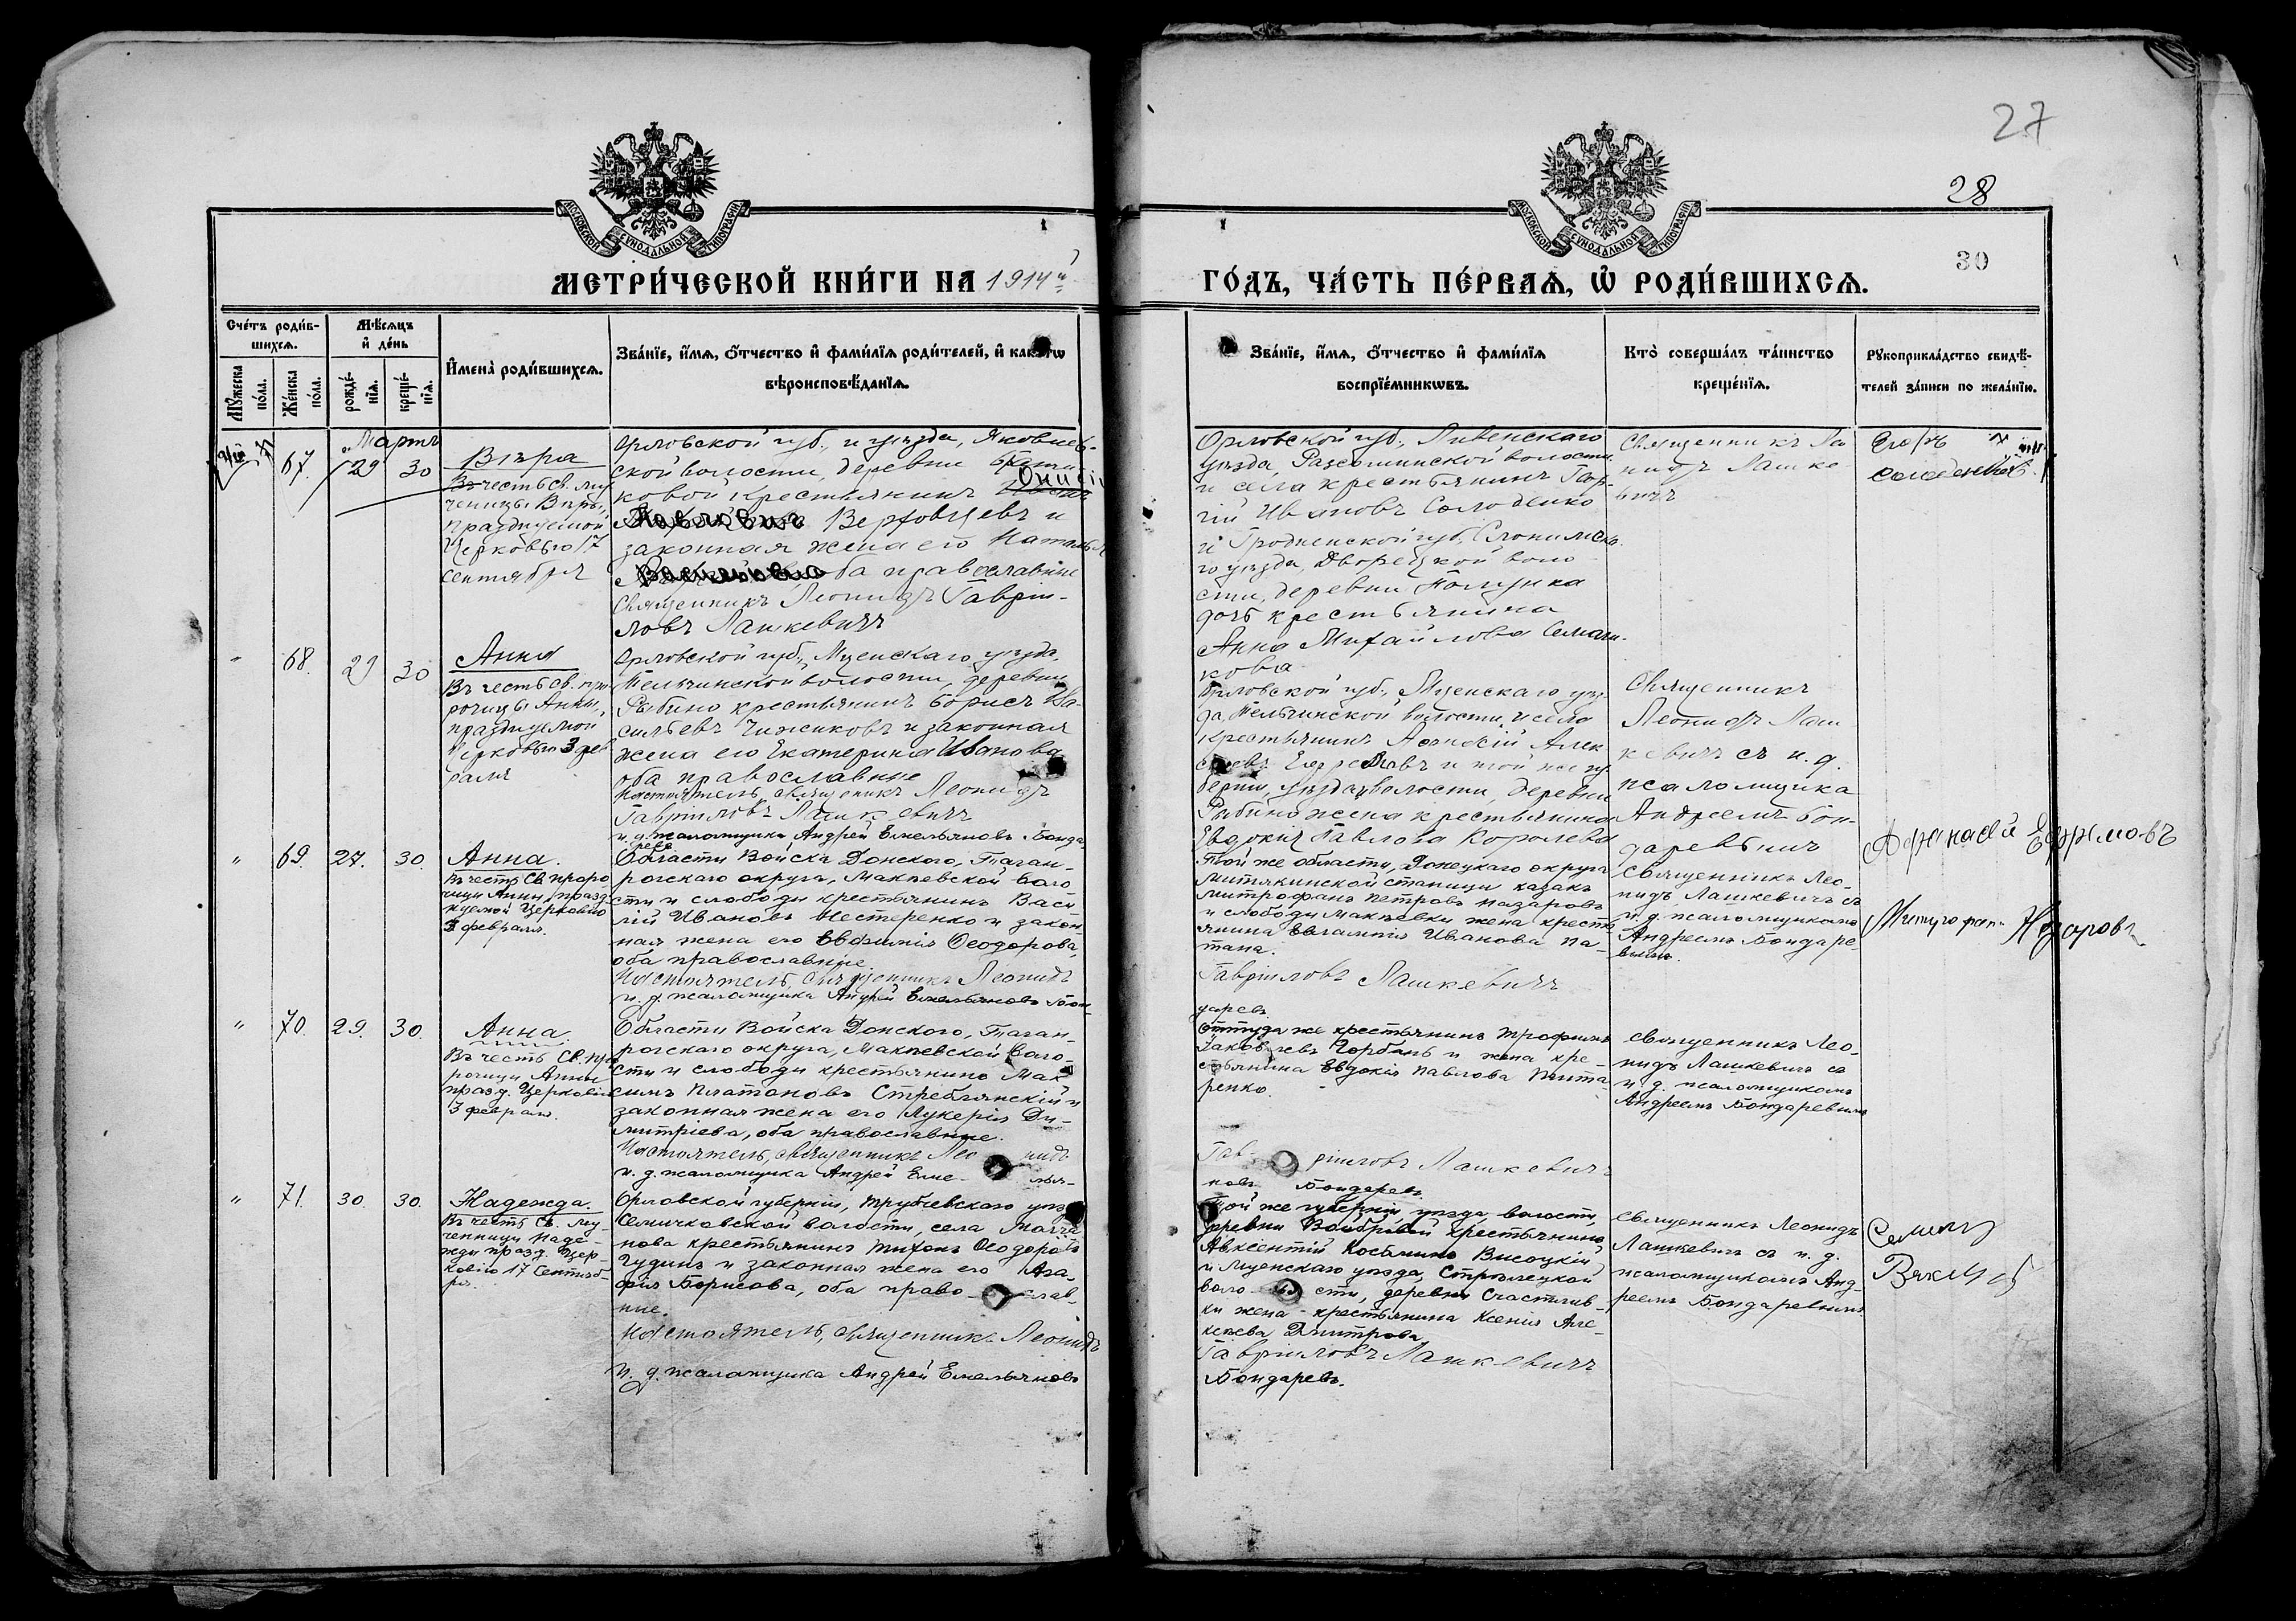 27
28
30
МОСКОВСКОЙ СѴНОДАЛЬНОЙ ТИПОГРАФІИ
МОСКОВСКОЙ СѴНОДАЛЬНОЙ ТИПОГРАФІИ
МЕТРИ́ЧЕСКОЙ КНИ́ГИ НА 1914й
ГО́ДЪ, ЧА́СТЬ ПЕ́РВАѦ, Ѡ҆ РОДИ́ВШИХСѦ.
Сче́тъ роди́в-
шихсѧ.
Мѣ́сѧцъ
и҆ де́нь
Мꙋ́жеска
по́ла.
Же́нска
по́ла.
рожде́-
нїѧ.
креще́-
нїѧ.
И҆мена̀ роди́вшихсѧ.
Зва́нїе, и҆́мѧ, ѻ҆́тчество и҆ фами́лїѧ роди́телей, и҆
вѣроисповѣ́данїѧ.
Зва́нїе, и҆́мѧ, ѻ҆́тчество и҆ фами́лїѧ
воспрїе́мникѡвъ.
Кто̀ соверша́лъ та́инство
креще́нїѧ.
Рꙋкоприкла́дство свидѣ́-
телей за́писи по жела́нїю.
Мартъ
67. 29 30
Вѣра
Въ честь св. му
ченицы Вѣры,
празднуемой
Церковью 17
сентября
Орловской губ. и уѣзда, Яковлев-
ской волости, деревни
ковой крестьянинъ
Верховцевъ и
законная жена его Наталья
оба православные
Священникъ Леонидъ Гавріи-
ловъ Лашкевичъ
Орловской губ., Ливенскаго
уѣзда, Россошинской волости
и села крестьянинъ Геор-
гій Ивановъ Солоденко
и Гродненской губ. Слонимска-
го уѣзда, Дворецкой воло
сти, деревни
дочь крестьянина
Анна Михайлова Семаш-
кова
Священникъ Лео
нидъ Лашке
вичъ
68. 29 30
Анна
Въ честь св. про
рочицы Анны,
празднуемой
Церковью 3 фев
раля
Орловской губ., Мценскаго уѣзда,
Тельчинской волости, деревни
Рыбино крестьянинъ Борисъ Ва-
сильевъ Чижиковъ и законная
жена его Екатерина Иванова
оба православные
Настоятель, священникъ Леонидъ
Гавріиловъ Лашкевичъ
и. д. псаломщика Андрей Емельяновъ Бонда
ревъ
Орловской губ., Мценскаго уѣз-
да, Тельчинской волости и села
крестьянинъ Алек
Ефремовъ и той же гу
берніи, уѣзда, волости, деревни
Рыбино жена крестьянина
Евдокія Павлова Королева
Священникъ
Леонидъ Лаш
кевичъ съ и. д.
псаломщика
Андреемъ Бон-
даревымъ
Афанасий Ефремовъ
69. 27. 30.
Анна.
Въ честь Св. проро
чицы Анны, празд-
нуемой Церковію
3 февраля.
Области Войска Донского, Таган-
рогскаго округа, Макѣевской воло
сти и слободы крестьянинъ Васи
лій Ивановъ Нестеренко и закон
ная жена его Евфимія Ѳеодорова,
оба православные.
Настоятель, священникъ Леонидъ
и. д. псаломщика Андрей Емельяновъ Бон-
Той же области, Донецкаго округа
Митякинской станицы казакъ
Митрофанъ Петровъ Назаровъ
и слободы Макѣевки жена кресть
янина Евлампія Иванова Па-
тана.
Гавріиловъ Лашкевичъ
даревъ.
Священникъ Лео-
нидъ Лашкевичъ съ
и. д. псаломщикомъ
Андреемъ Бондаре-
вымъ.
Митрофанъ Назаровъ
70. 29. 30.
Анна.
Въ честь Св. про
рочицы Анны
празд. Церковію
3 февраля.
Области Войска Донского, Таган-
рогскаго округа, Макѣевской воло-
сти и слободы крестьянинъ Мак
симъ Платоновъ Стреблянскій и
законная жена его Лукерія Ди-
митріева, оба православные.
Настоятель, священникъ Лео нидъ
и. д. псаломщика Андрей Еме- лья-
Оттуда же крестьянинъ Трофимъ
Іаковлевъ Горбань и жена кре-
стьянина Евдокія Павлова Пита-
ренко.
Гав- ріиловъ Лашкевичъ
новъ Бондаревъ.
Священникъ Лео-
нидъ Лашкевичъ съ
и. д. псаломщикомъ
Андреемъ Бондаревымъ
71. 30. 30.
Надежда.
Въ честь Св. му-
ченицы Наде-
жды празд. Цер
ковію 17 Сентяб-
ря.
Орловской губерніи, Трубчевскаго уѣз
Семячковской волости, села Молча
нова крестьянинъ Тихонъ Ѳеодоровъ
Чудинъ и законная жена его Ага-
фія Борисова, оба право- слав-
ные.
Настоятель, священникъ Леонидъ
и. д. псаломщика Андрей Емельяновъ
Той же губерніи уѣзда волости,
деревни крестьянинъ
Авксентій Косьминъ Высоцкій
и Мценскаго уѣзда, Стрѣлецкой
воло сти, деревни Счастлив-
ки жена крестьянина Ксенія Але-
ксѣева Дмитрова
Гавріиловъ Лашкевичъ
Бондаревъ.
Священникъ Леонидъ
Лашкевичъ съ и. д.
псаломщикомъ Анд-
реемъ Бондаревымъ